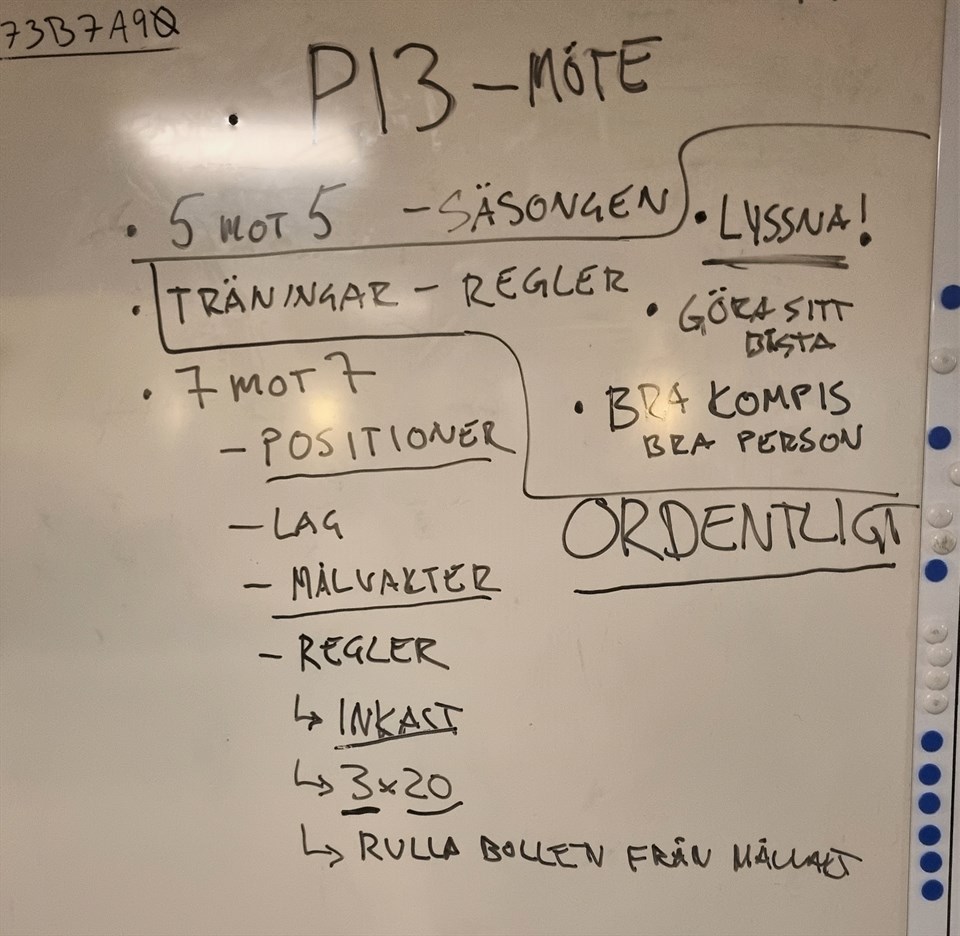 73B7A9Q
P13 - MÖTE
• 5 MOT 5 - SÄSONGEN
• TRÄNINGAR - REGLER
• 7 MOT 7
- POSITIONER
- LAG
- MÅLVAKTER
- REGLER
↳ INKAST
↳ 3x20
↳ RULLA BOLLEN FRÅN MÅLVAKT
• LYSSNA!
• GÖRA SITT
BÄSTA
• BRA KOMPIS
BRA PERSON
ORDENTLIGT